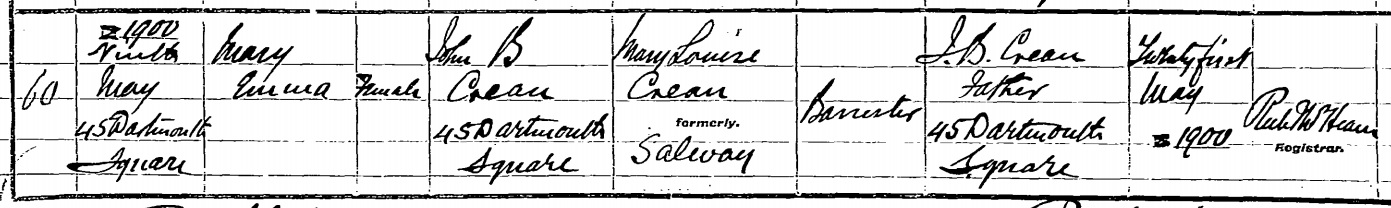 60
1900
Ninth
May
45 Dartmouth
Square
Mary
Emma
Female
John B
Crean
45 Dartmouth
Square
Mary Louise
Crean
formerly.
Salway
Barrister
J. B. Crean
Father
45 Dartmouth
Square
Twenty first
May
1900
Registrar.